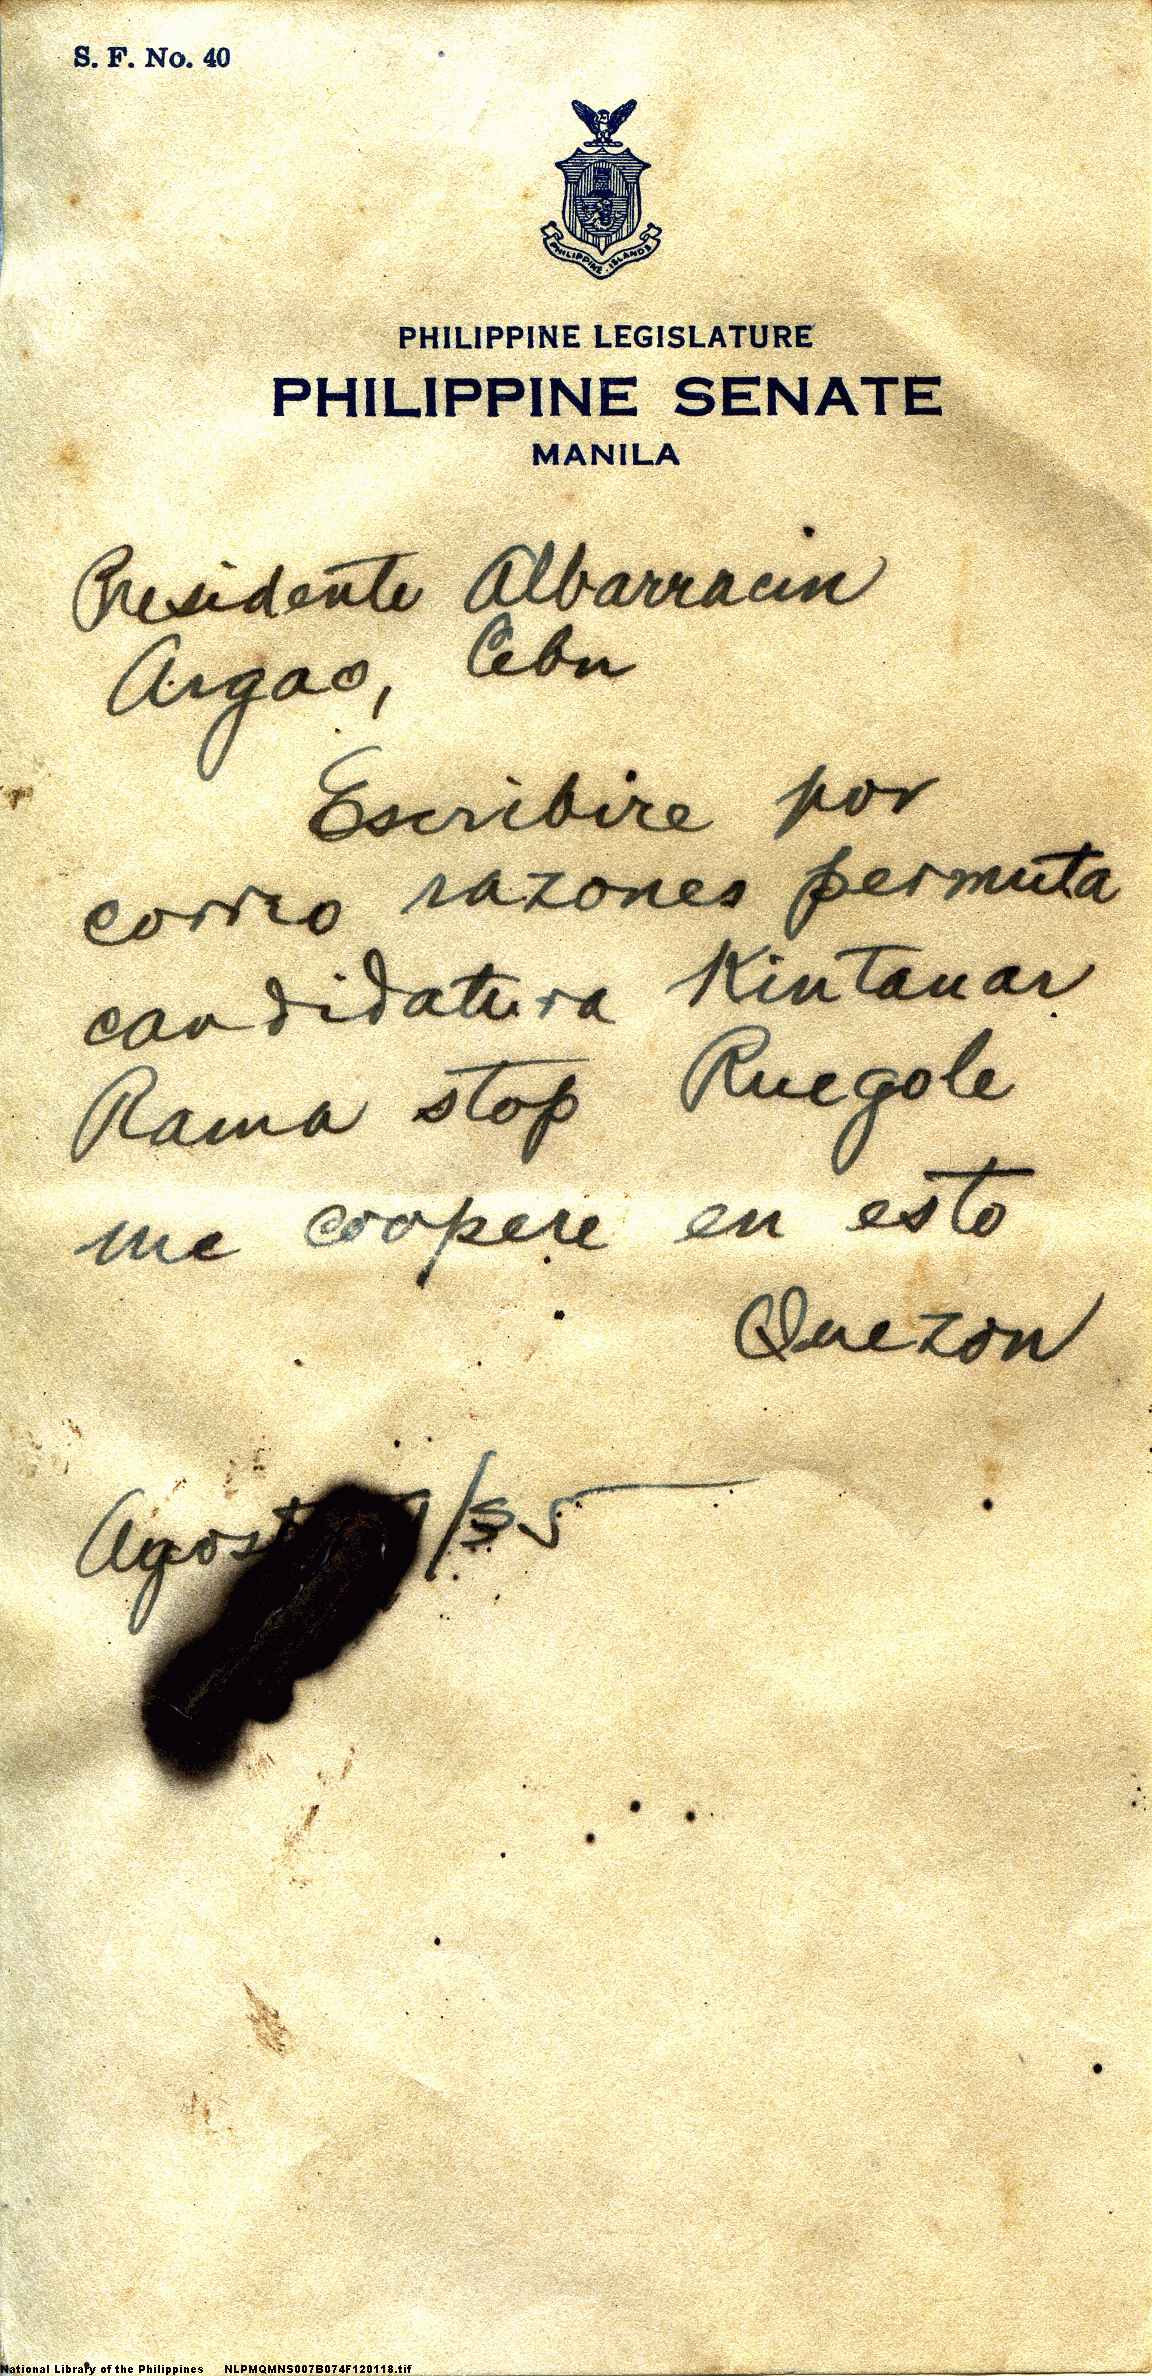 S. F. No. 40
PHILIPPINE ISLANDS
PHILIPPINE LEGISLATURE
PHILIPPINE SENATE
MANILA
Presidente Albarracin
Argao, Cebu
Escribire por
correo razones permuta
candidatura Kintanar
Rama stop Ruegole
me coopere en esto
Quezon
Agost /35
National Library of the Philippines NLPMQMNS007B074F120118.tif